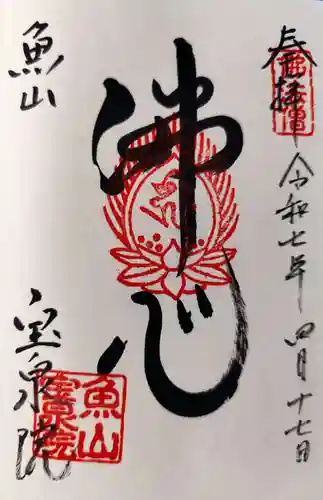 奉拝
令和七年四月十七日
佛心
魚山
宝泉院
魚山
宝泉院